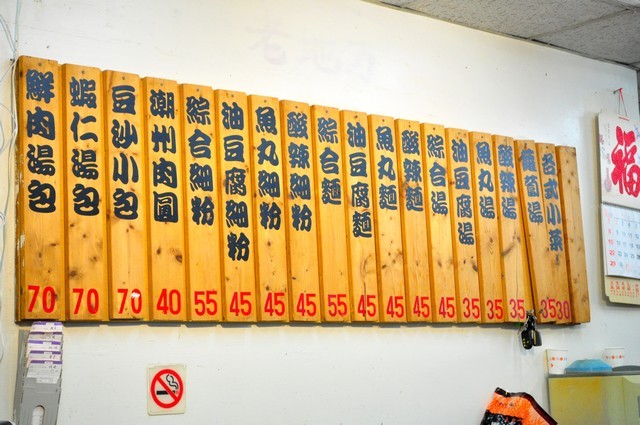 鮮肉湯包 70
蝦仁湯包 70
豆沙小包 70
潮州肉圓 40
綜合細粉 55
油豆腐細粉 45
魚丸細粉 45
酸辣細粉 45
綜合麵 55
油豆腐麵 45
魚丸麵 45
酸辣麵 45
綜合湯 45
油豆腐湯 35
魚丸湯 35
酸辣湯 35
湯 35
各式小菜 30
福